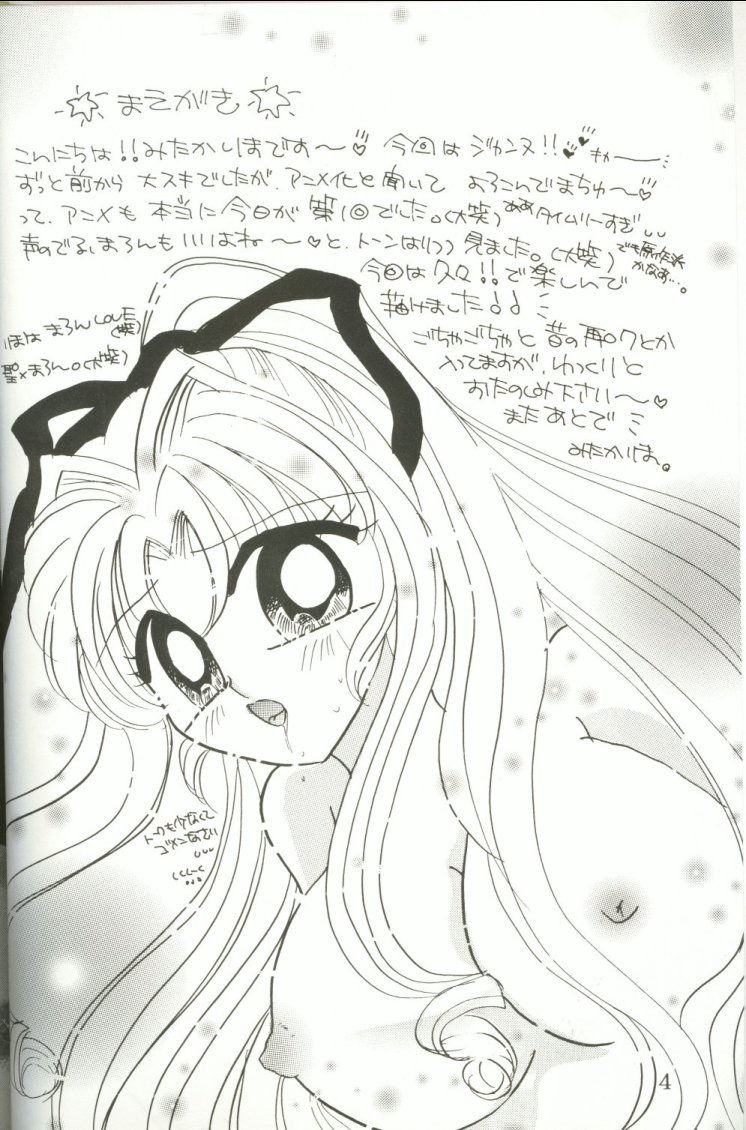 まえがき
こんにちは!!みたかりほです〜♡ 今回はジャンヌ!!♥♥キャー
ずっと前から大スキでしたが、アニメ化と聞いて よろこんでまちゅ〜♡
って、アニメも本当に今日が第1回でした。(大笑) ああタイムリーすぎ
声のでるまろんもいいはね〜♡と、トーンはりつつ見ました。(大笑) でも原作派かなぁ…。
今回は久々!!で楽しんで
描けました!!
ごちゃごちゃと昔の再ロクとか
入ってますが、ゆっくりと
おたのしみ下さい〜♡
またあとで
みたかりほ。
りほは まろんLOVE(笑)
聖×まろん。(大笑)
トークも少なくて
ゴメンなさい
4